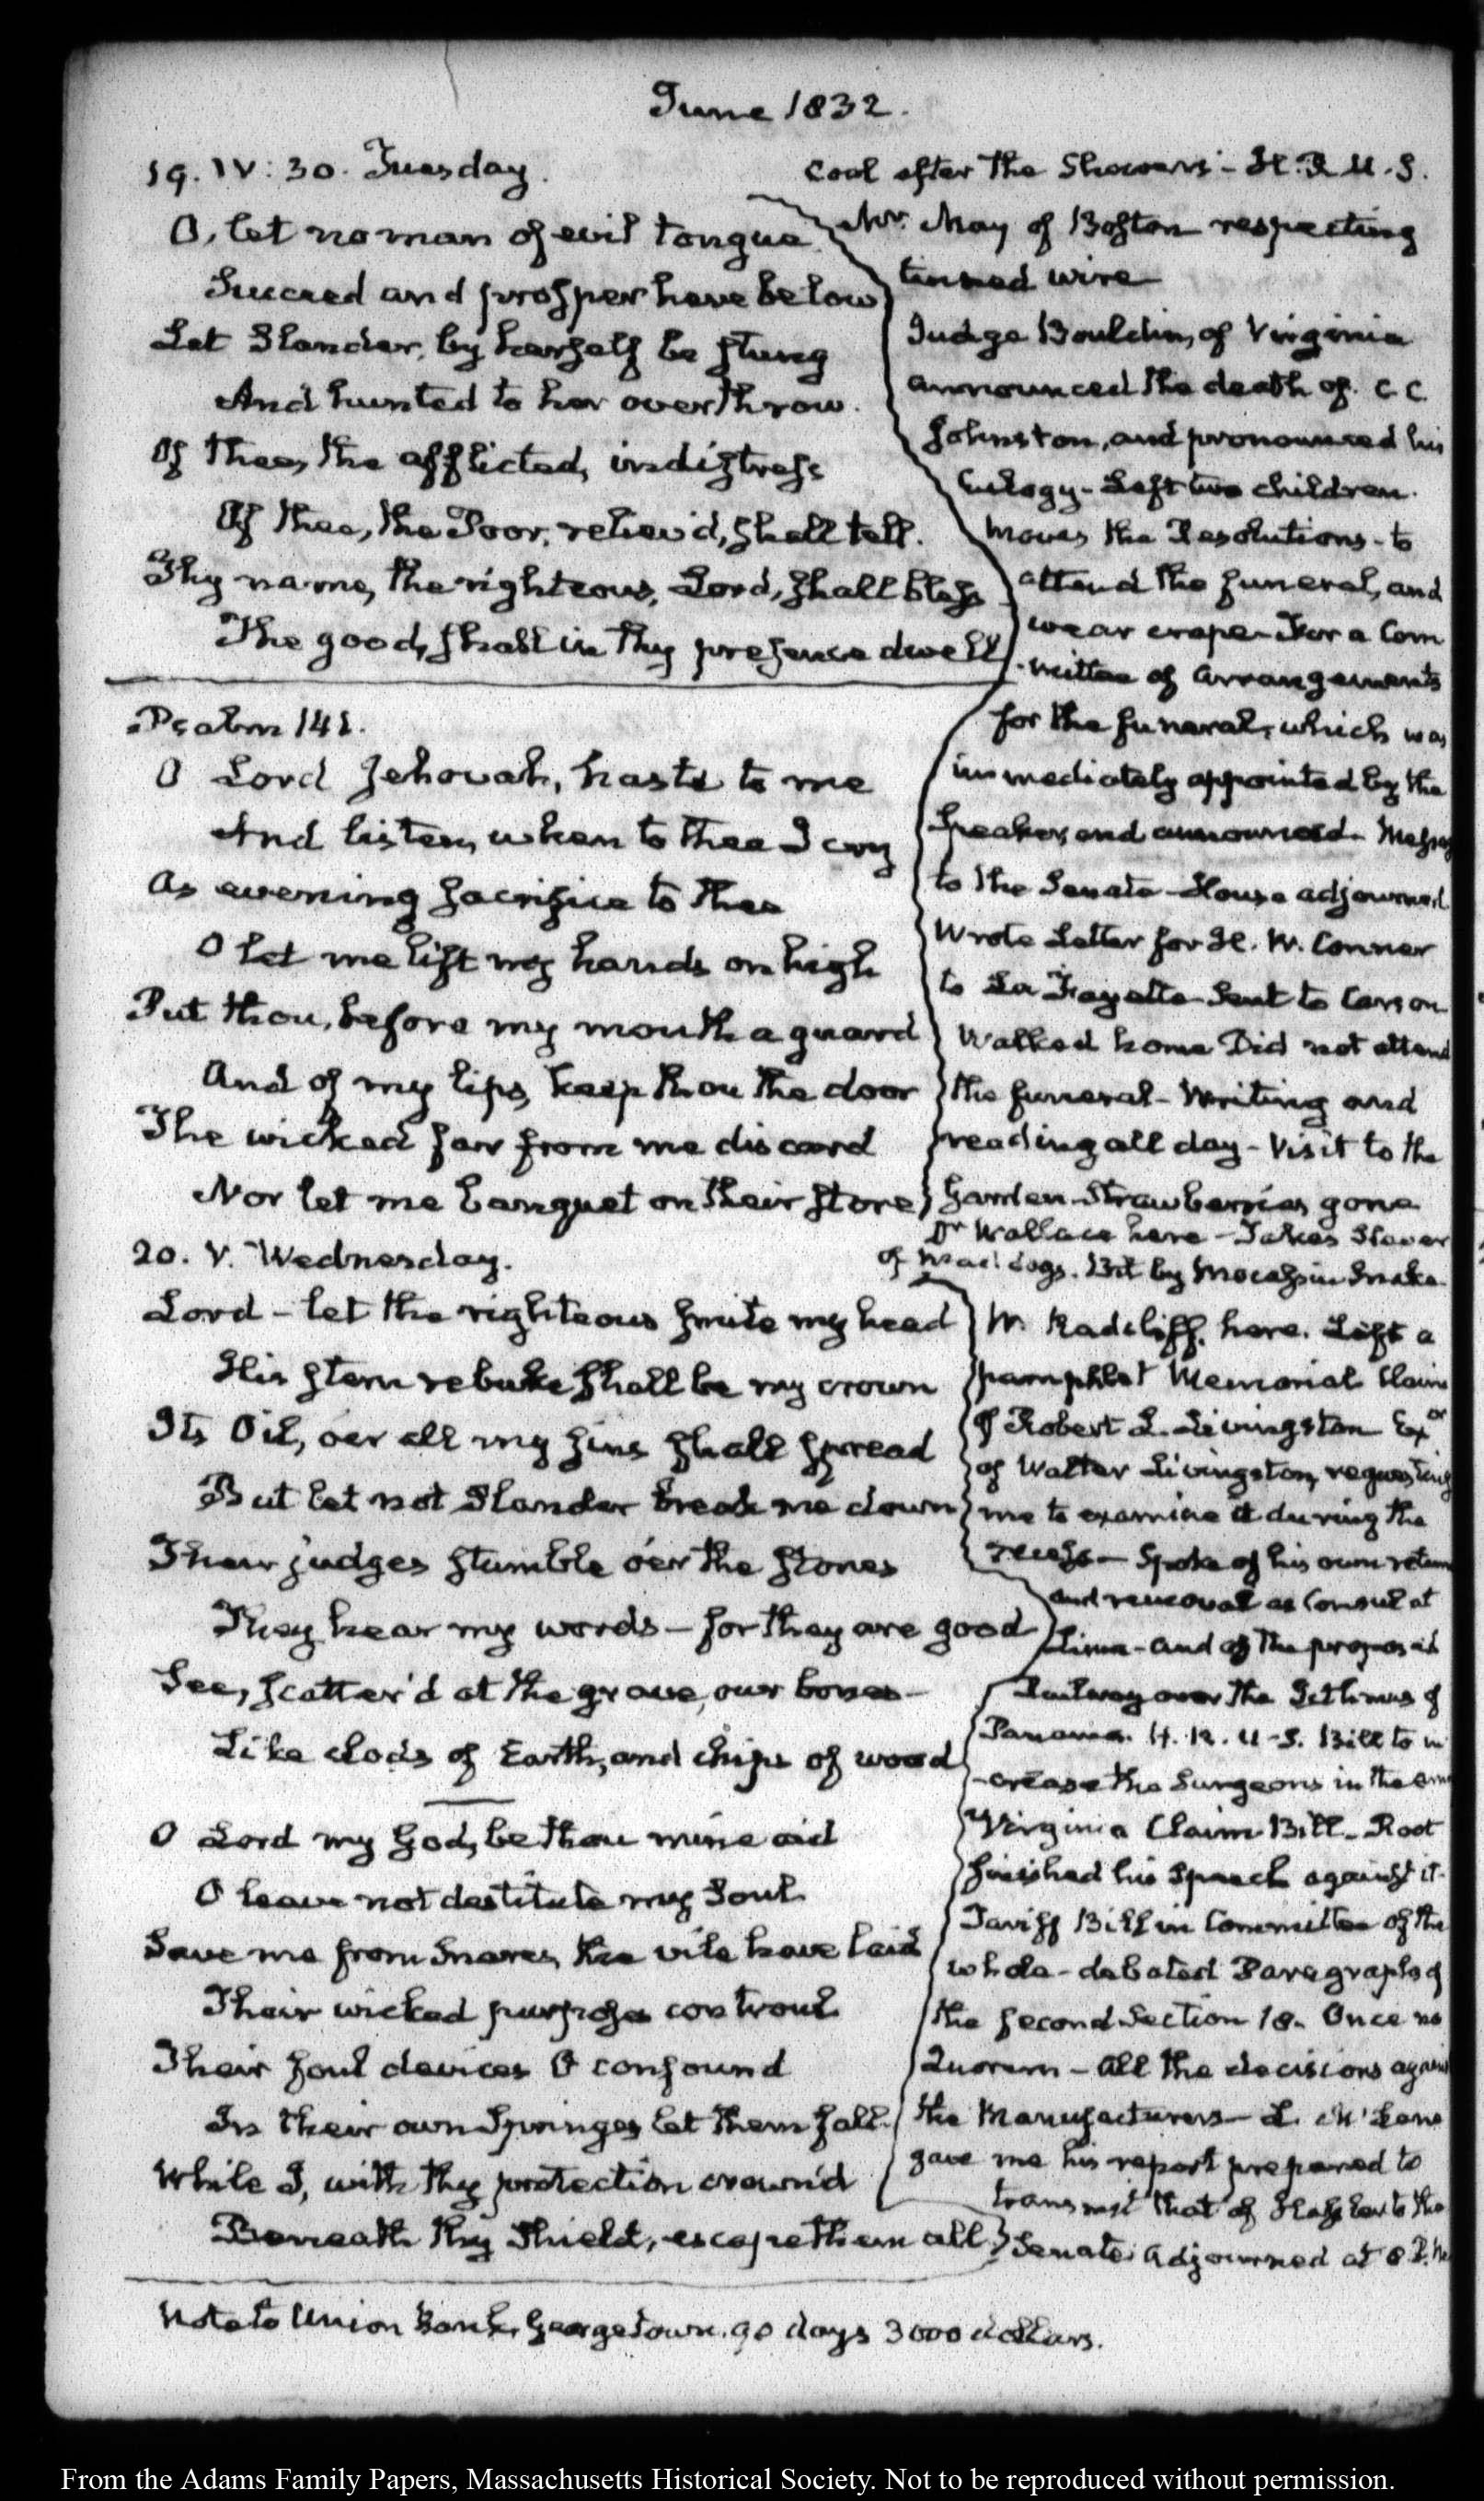 June 1832.
19. IV: 30. Tuesday.
O, let no man of evil tongue
Succeed and prosper here below
Let Slander, by herself be stung
And hunted to her overthrow.
Of thee, the afflicted, in distress
Of thee, the Poor, reliev'd, shall tell.
Thy name, the righteous, Lord, shall bless
The good, shall in thy presence dwell
Psalm 141.
O Lord Jehovah, haste to me
And listen, when to thee I cry
As evening sacrifice to thee
O let me lift my hands on high
Put thou, before my mouth a guard
And of my lips, keep thou the door
The wicked far from me discard
Nor let me banquet on their store
Cool after the Showers - H.R.U.S.
Mr. May of Boston respecting
tinned wire
Judge Bouldin, of Virginia
announced the death of. C. C.
Johnston, and pronounced his
Eulogy - Left two children.
Moves the Resolutions - to
attend the funeral, and
wear crape - For a Com
-mittee of arrangements
for the funeral, which was
immediately appointed by the
Speaker, and announced - Messag
to the Senate - House adjourned.
Wrote Letter for H. W. Conner
to La Fayette Sent to Carson
Walked home Did not attend
the funeral - Writing and
reading all day - Visit to the
Garden Strawberries gone
20. V. Wednesday.
Lord - let the righteous smite my head
His stern rebuke, shall be my crown
Its Oil, o'er all my sins shall spread
But let not Slander break me down
Their judges stumble o'er the stones
They hear my words - for they are good
See, scatter'd at the grave, our bones -
Like clods of Earth, and chips of wood
O Lord my God, be thou mine aid
O leave not destitute my Soul
Save me from Snares, the vile have laid
Their wicked purpose controul
Their foul devices O confound
In their own Springes let them fall.
While I, with thy protection crown'd
Beneath thy Shield, escape them all
Dr Wallace here - Takes Slaver
of mad dogs. Bit by Mocassin Snake
W. Radcliff. here. Left a
pamphlet Memorial Claim
of Robert L. Livingston Ex.or
of Walter Livingston, requesting
me to examine it during the
recess - Spoke of his own return
and removal as Consul at
Lima - and of the proposed
Railway over the Isthmus of
Panama. H. R. U. S. Bill to in
-crease the Surgeons in the arm
Virginia Claim Bill - Root
finished his Speech against it.
Tariff Bill in Committee of the
whole - debated Paragraphs of
the second Section 18. Once no
Quorum - All the decisions again
the Manufacturers - L. McLane
gave me his report prepared to
transmit that of Hassler to the
Senate. Adjourned at 8 P.M.
Note to Union Bank, Georgetown. 90 days 3000 dollars.
From the Adams Family Papers, Massachusetts Historical Society. Not to be reproduced without permission.